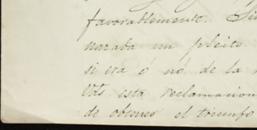 favorablemente. Si
naraba un pleito
si era ó nó de la
esta reclamacion
de obtener el triunfo